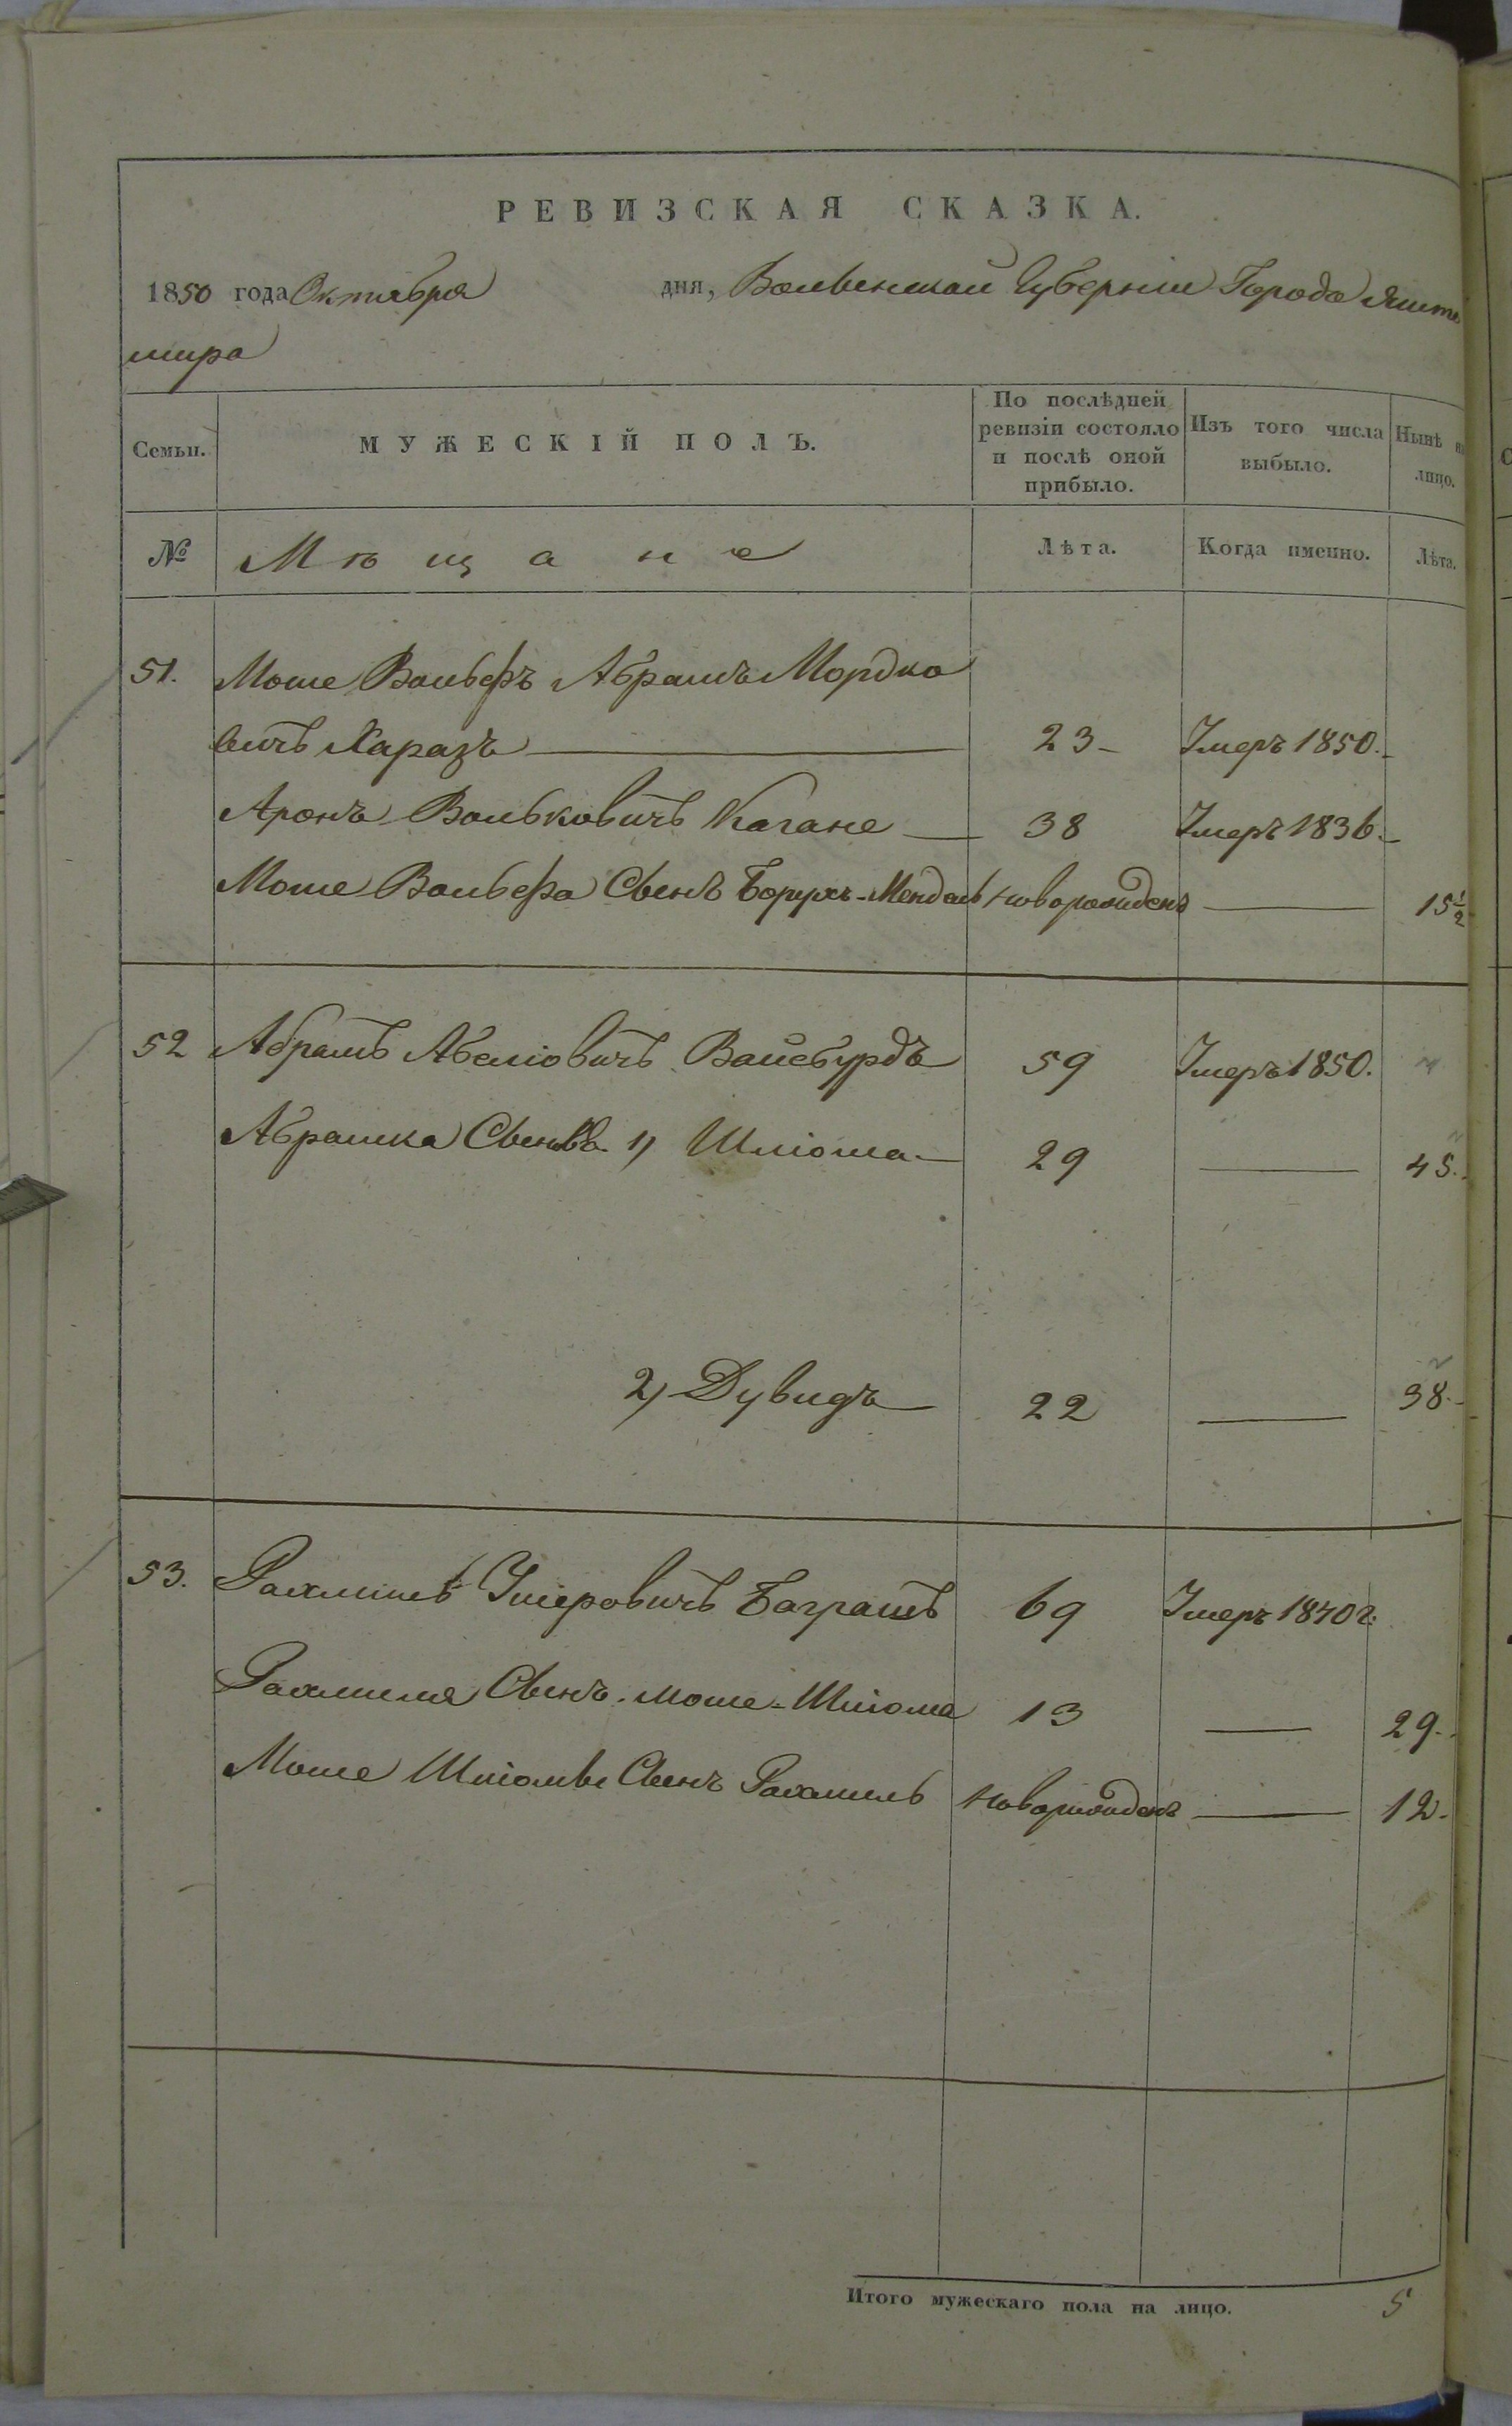 РЕВИЗСКАЯ СКАЗКА.
1850 года Октября дня, Волынской Губерніи Города Жито
мира
Семьи. МУЖЕСКІЙ ПОЛЪ. По послѣдней ревизіи состояло и послѣ оной прибыло. Изъ того числа выбыло. Нынѣ на лицо.
№ Мѣщане Лѣта. Когда именно. Лѣта.
51. Моше Вольфъ Абрамъ Мордко
вичъ Харазъ 23 Умеръ 1850.
Аронъ Вольковичъ Кагане 38 Умеръ 1836.
Моше Вольфа Сынъ Борухъ-Мендель новорожденъ 15 1/2
52 Абрамъ Авелiовичъ Вайсбурдъ 59 Умеръ 1850.
Абрамка Сыновья 1) Шлiома 29 45.
2) Дувидъ 22 38.
53. Рахмиль Умеръ 1840 г. 69
Рахмиля Сынъ Моше-Шлiома 13 29.
Моше Шлiомы Сынъ Рахмиль новорожденъ 12.
Итого мужескаго пола на лицо. 5